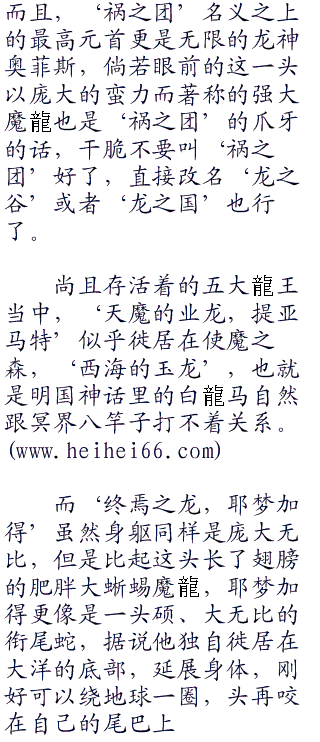 而且，‘祸之团’名义之上
的最高元首更是无限的龙神
奥菲斯，倘若眼前的这一头
以庞大的蛮力而著称的强大
魔龍也是‘祸之团’的爪牙
的话，干脆不要叫‘祸之
团’好了，直接改名‘龙之
谷’或者‘龙之国’也行
了。
尚且存活着的五大龍王
当中，‘天魔的业龙，提亚
马特’似乎徙居在使魔之
森，‘西海的玉龙’，也就
是明国神话里的白龍马自然
跟冥界八竿子打不着关系。
(www.heihei66.com)
而‘终焉之龙，耶梦加
得’虽然身躯同样是庞大无
比，但是比起这头长了翅膀
的肥胖大蜥蜴魔龍，耶梦加
得更像是一头硕、大无比的
衔尾蛇，据说他独自徙居在
大洋的底部，延展身体，刚
好可以绕地球一圈，头再咬
在自己的尾巴上